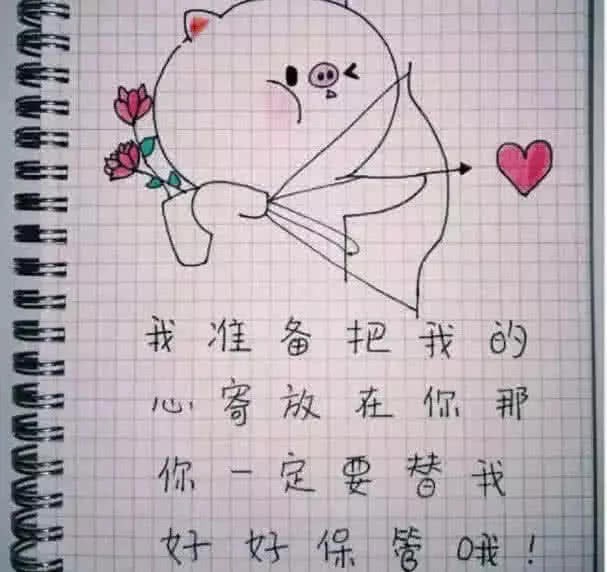 我准备把我的
心寄放在你那
你一定要替我
好好保管哦!